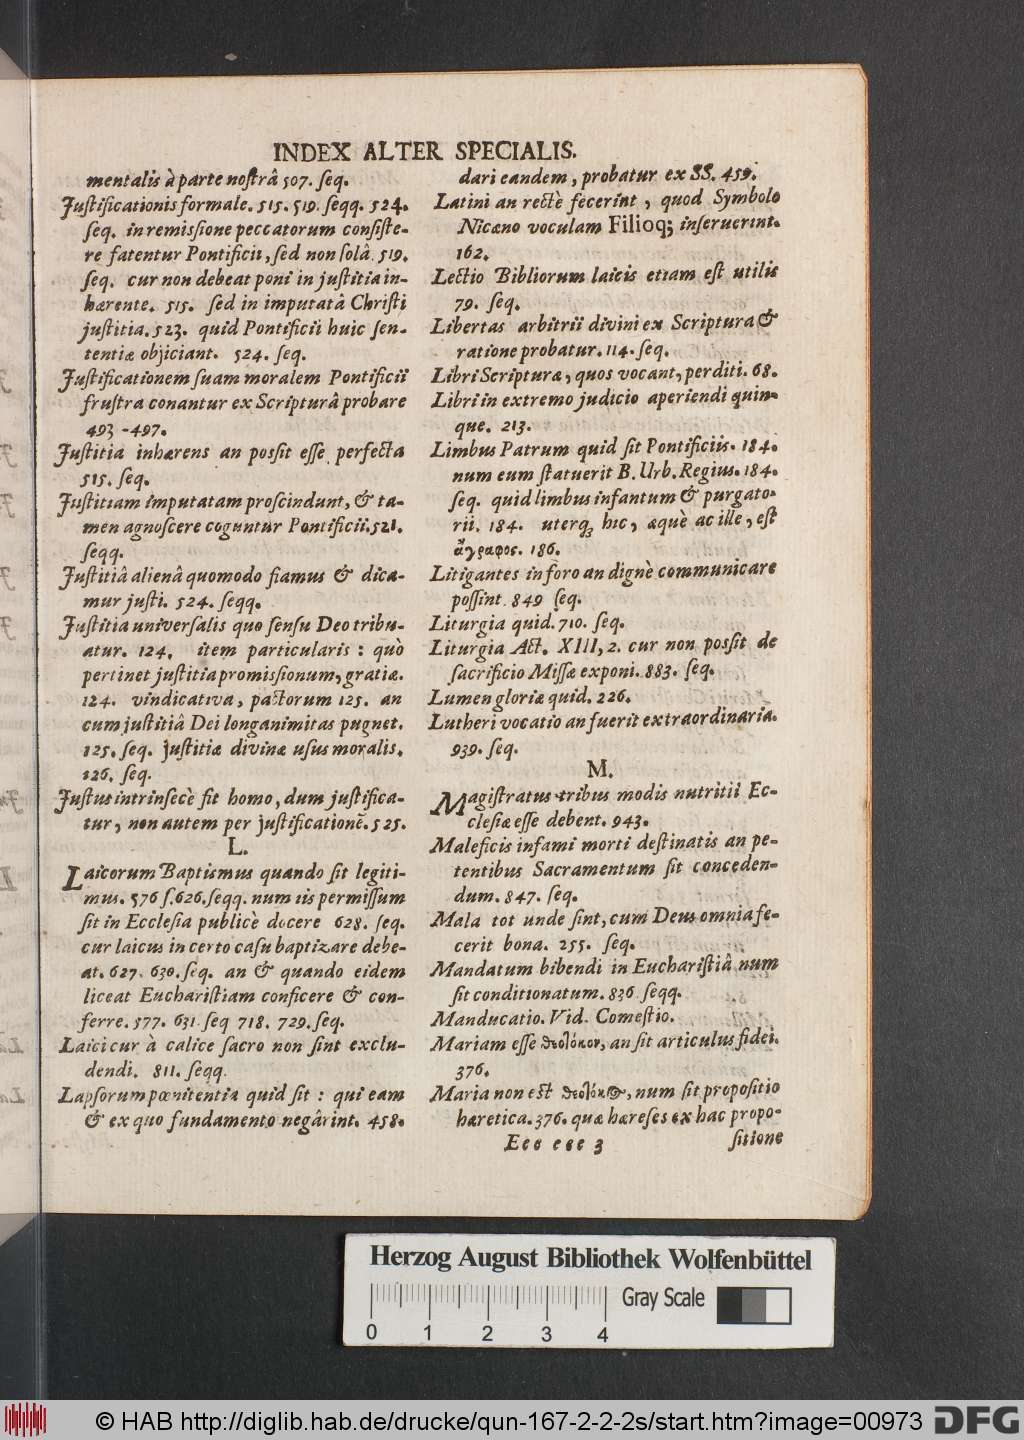 INDEX ALTER SPECIALIS.
mentalis à parte noſtrâ 507. ſeq.
Juſtificationis formale. 515. 519. ſeqq. 524.
ſeq. in remiſſione peccatorum conſiſte-
re fatentur Pontificii, ſed non ſolâ. 519.
ſeq. cur non debeat poni in juſtitia in-
hærente. 515. ſed in imputatâ Chriſti
juſtitia. 523. quid Pontificii huic ſen-
tentiæ objiciant. 524. ſeq.
Juſtificationem ſuam moralem Pontificii
fruſtra conantur ex Scripturâ probare
493 - 497.
Juſtitia inhærens an poſſit eſſe perfecta
515. ſeq.
Juſtitiam imputatam proſcindunt, & ta-
men agnoſcere coguntur Pontificii. 521.
ſeqq.
Juſtitiâ alienâ quomodo fiamus & dica-
mur juſti. 524. ſeqq.
Juſtitia univerſalis quo ſenſu Deo tribu-
atur. 124. item particularis : quò
pertinet juſtitia promiſſionum, gratiæ.
124. vindicativa, pactorum 125. an
cum juſtitiâ Dei longanimitas pugnet.
125. ſeq. juſtitiæ divinæ uſus moralis.
126. ſeq.
Juſtus intrinſecè fit homo, dum juſtifica-
tur, non autem per juſtificationē. 525.
L.
Laicorum Baptiſmus quando ſit legiti-
mus. 576 ſ. 626. ſeqq. num iis permiſſum
ſit in Eccleſia publicè docere 628. ſeq.
cur laicus in certo caſu baptizare debe-
at. 627. 630. ſeq. an & quando eidem
liceat Euchariſtiam conficere & con-
ferre. 577. 631. ſeq 718. 729. ſeq.
Laici cur à calice ſacro non ſint exclu-
dendi. 811. ſeqq.
Lapſorum pœnitentia quid ſit : qui eam
& ex quo fundamento negârint. 458.
dari eandem, probatur ex SS. 459.
Latini an rectè fecerint, quod Symbolo
Nicæno voculam Filioq; inſeruerint.
162.
Lectio Bibliorum laicis etiam eſt utilis
79. ſeq.
Libertas arbitrii divini ex Scriptura &
ratione probatur. 114. ſeq.
Libri Scripturæ, quos vocant, perditi. 68.
Libri in extremo judicio aperiendi quin-
que. 213.
Limbus Patrum quid ſit Pontificiis. 184.
num eum ſtatuerit B. Urb. Regius. 184.
ſeq. quid limbus infantum & purgato-
rii. 184. uterq; hic, æquè ac ille, eſt
ἄγραφος. 186.
Litigantes in foro an dignè communicare
poſſint. 849 ſeq.
Liturgia quid. 710. ſeq.
Liturgia Act. XIII, 2. cur non poſſit de
ſacrificio Miſſæ exponi. 883. ſeq.
Lumen gloriæ quid. 226.
Lutheri vocatio an fuerit extraordinaria.
939. ſeq.
M.
Magiſtratus tribus modis nutritii Ec-
cleſiæ eſſe debent. 943.
Maleficis infami morti deſtinatis an pe-
tentibus Sacramentum ſit conceden-
dum. 847. ſeq.
Mala tot unde ſint, cum Deus omnia fe-
cerit bona. 255. ſeq.
Mandatum bibendi in Euchariſtiâ num
ſit conditionatum. 836 ſeqq.
Manducatio. Vid. Comeſtio.
Mariam eſſe θεολόκον, an ſit articulus fidei.
376.
Maria non eſt θεολόκ@, num ſit propoſitio
hæretica. 376. quæ hæreſes ex hac propo-
Eee eee 3 ſitione
Herzog August Bibliothek Wolfenbüttel
Gray Scale
0 1 2 3 4
© HAB http://diglib.hab.de/drucke/qun-167-2-2-2s/start.htm?image=00973 DFG